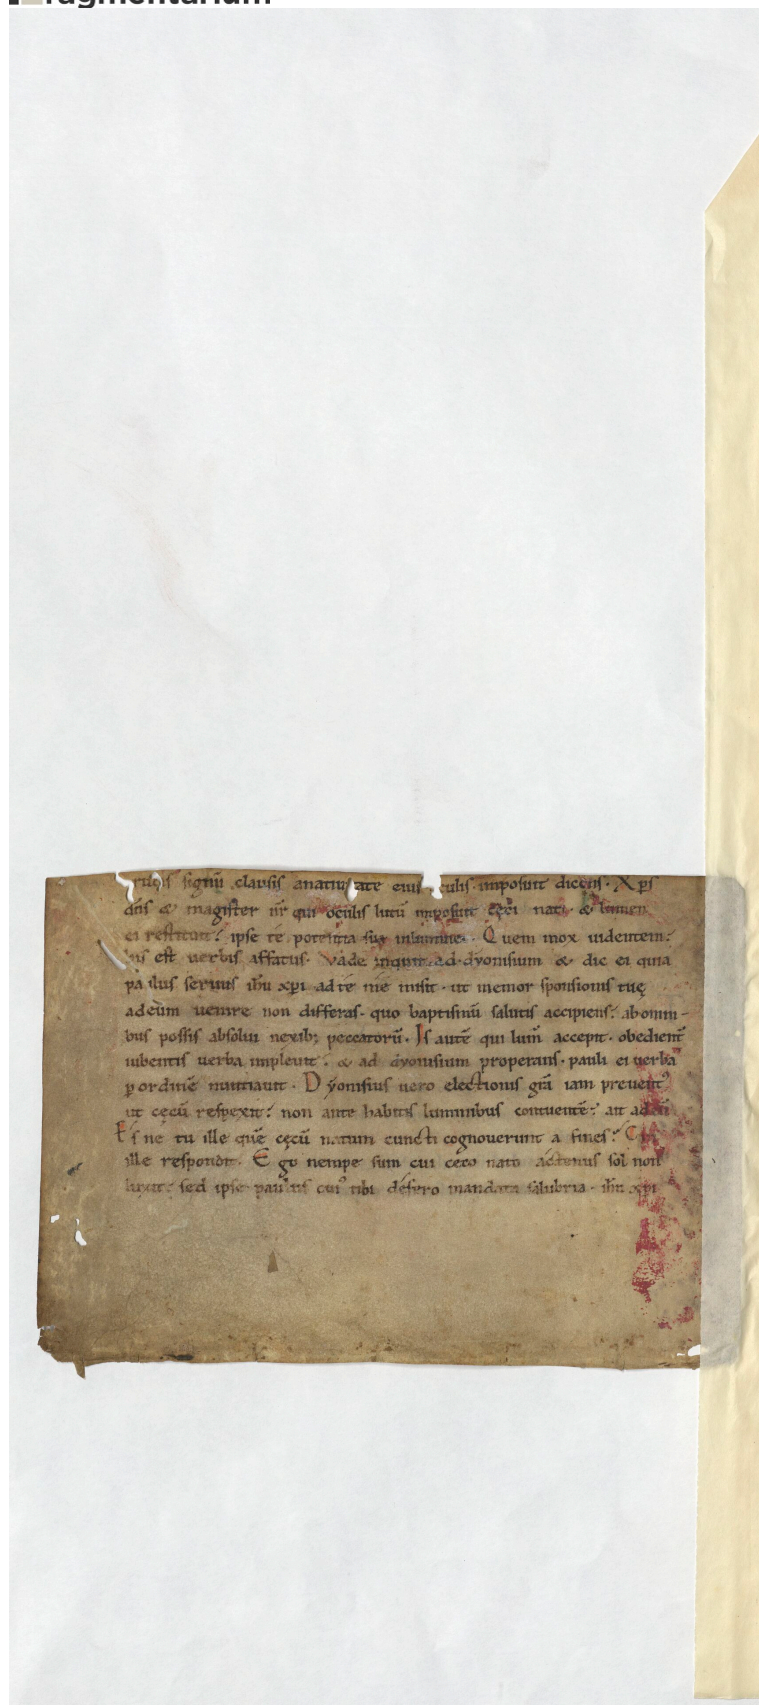 crucis signū clausis a natiuitate eius oculis imposuit dicens. Xp̄s
dn̄s & magister nr̄ qui oculis lutū imposuit cęci nati & lumen
ei restituit? ipse te potentia sua inluminet. Quem mox uidentem?
his est uerbis affatus. Vade inquit ad dyonisium & dic ei quia
paulus seruus ih̄u xp̄i ad te me misit. ut memor sponsionis tuę
ad eum uenire non differas. quo baptismū salutis accipiens? ab omni-
bus possis absolui nexib; peccatorū. Is autē qui lum̄ accepit. obedient̄
iubentis uerba impleuit? & ad dyonisium properans. pauli ei uerba
p ordinē nuntiauit. Dyonisius uero electionis gr̄a iam preuentꝰ
ut cęcū respexit? non ante habitis luminibus contuentē? ait ad eū
Es ne tu ille quē cęcū natum cuncti cognouerunt a fines? Cui
ille respondit. Ego nempe sum cui ceco nato actenus sol non
luxit? sed ipse paulus cuiꝰ tibi defero mandata salubria. ih̄u xp̄i